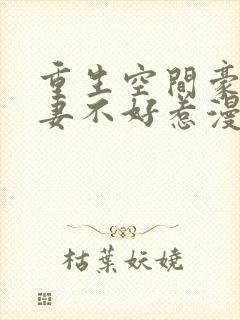 重生空間豪
妻不好惹漫
枯葉妖嬈